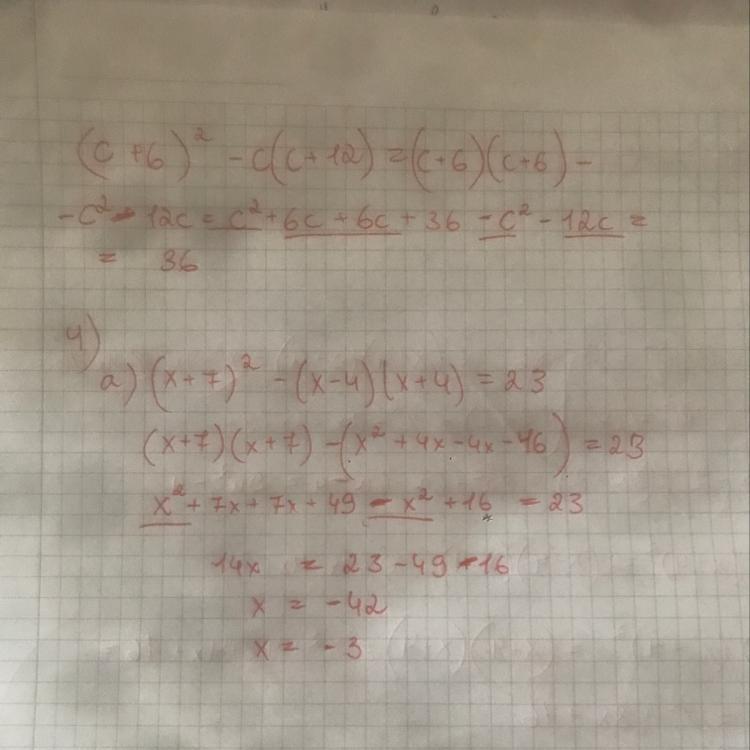 (c + 6)² - c(c + 12) = (c + 6)(c + 6) -
- c² - 12c = c² + 6c + 6c + 36 - c² - 12c =
= 36
4)
a) (x + 7)² - (x - 4)(x + 4) = 23
(x + 7)(x + 7) - (x² + 4x - 4x - 16) = 23
x² + 7x + 7x + 49 - x² + 16 = 23
14x = 23 - 49 - 16
x = -42
x = -3